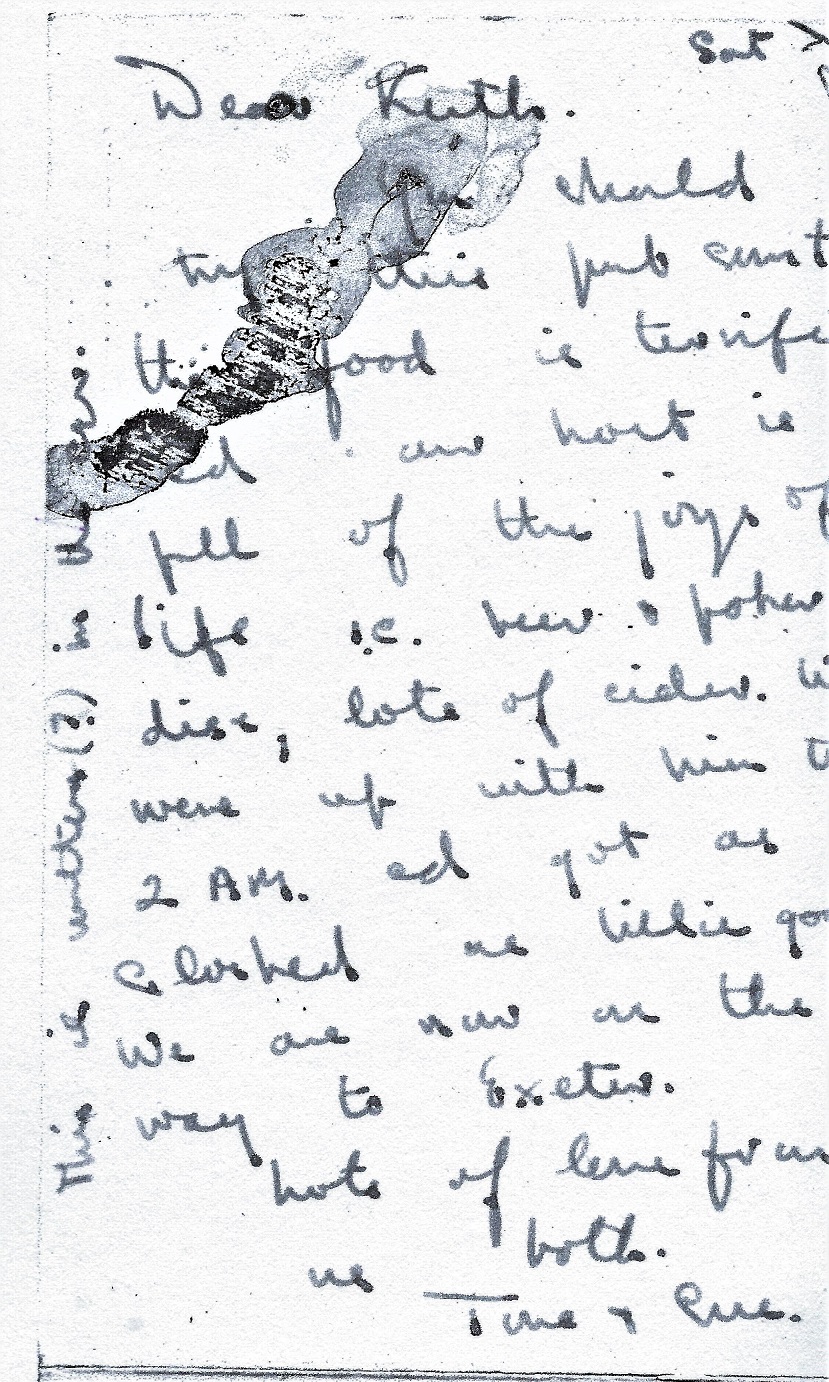 Sat
Dear Ruth.
You should
try this pub sumt
the food is terrifi
ed our host is
full of the joys of
life i.e. beer & poker
dise, lots of cider. We
were up with him t
2 AM. ed got as
sloshed as billie go
We are now on the
way to Exeter.
lots of love from
us both.
Tone & Sue.
This is written (?) in